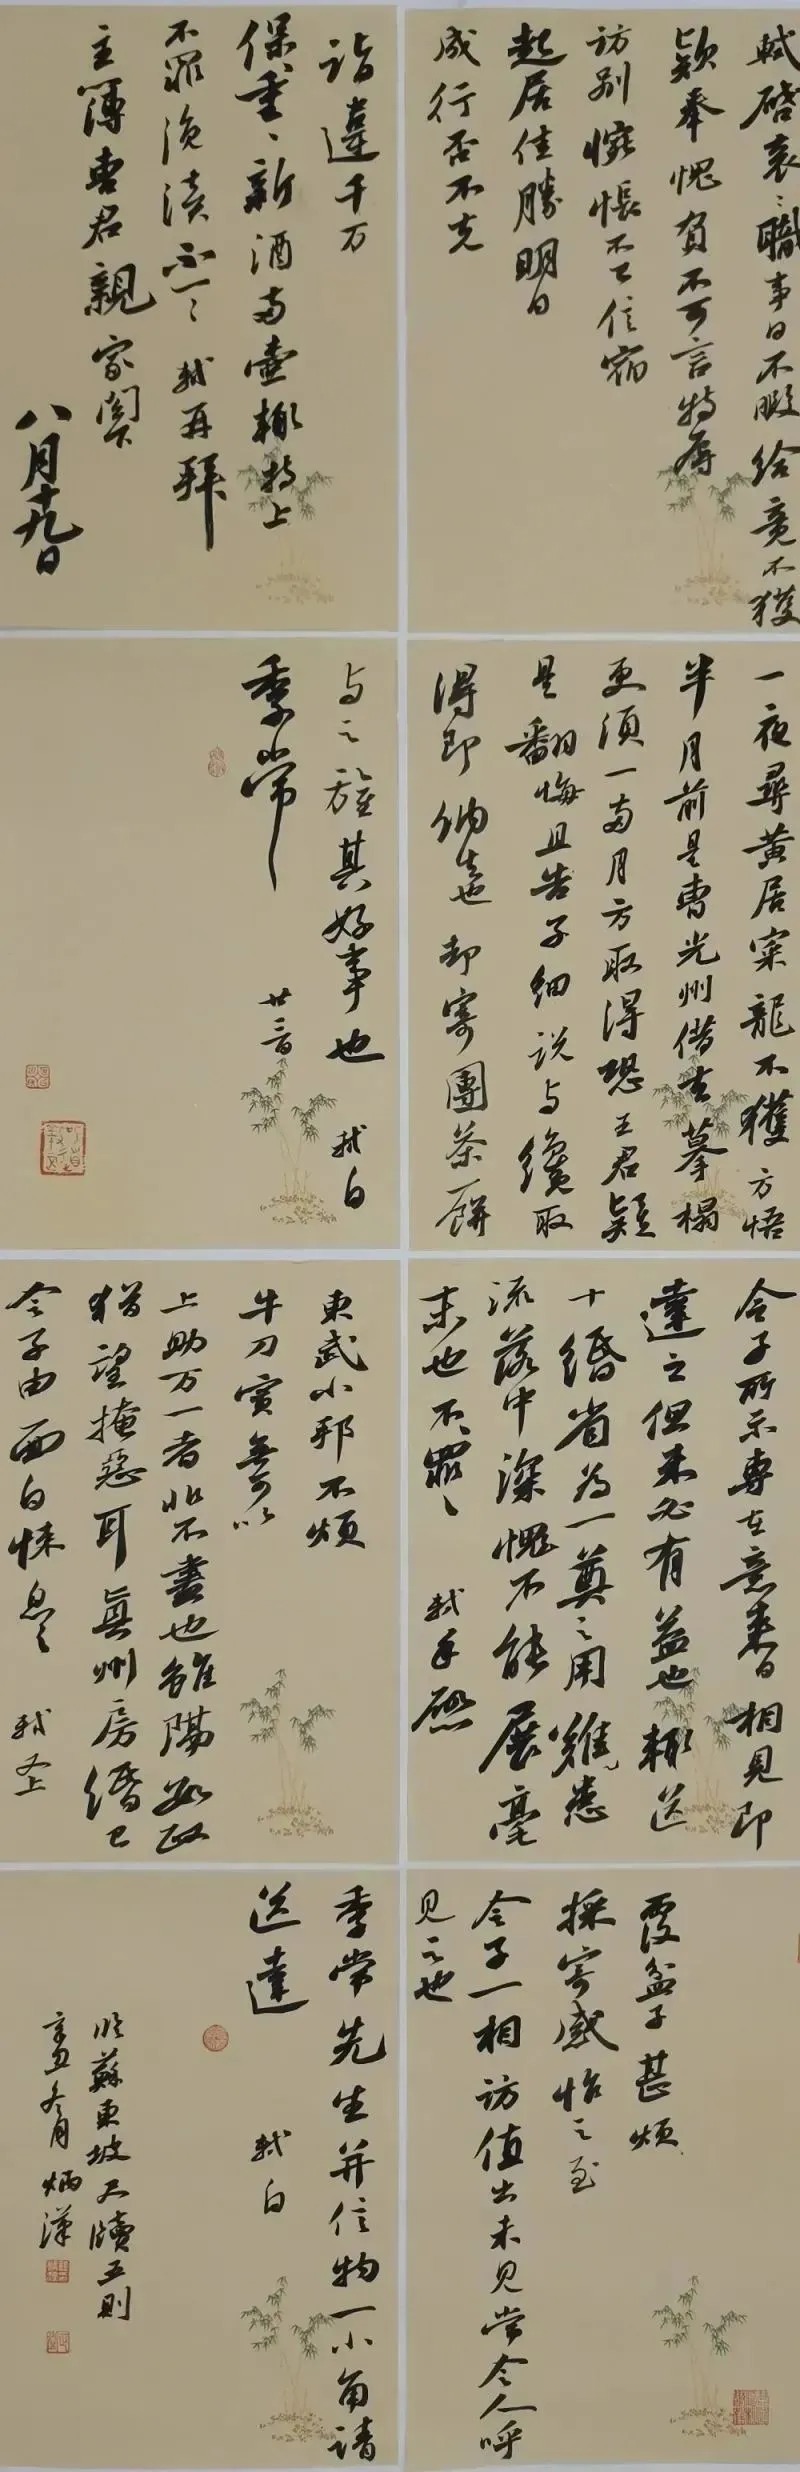 軾啓衮衮職事日不暇給竟不獲
款奉愧負不可言特辱
訪別惋悵不已信宿
起居佳勝明日
成行否不克
詣違千万
保重保重新酒兩壺輒持上
不罪浼瀆不一一軾再拜
主簿曹君親家閣下
八月十九日
一夜尋黃居寀龍不獲方悟
半月前是曹光州借去摹榻
更須一兩月方取得恐王君疑
是翻悔且告子細說与纔取
得即納去也却寄團茶一餅
与之旌其好事也 軾白
季常 廿三日
令子所示專在意來日相見即
達之但未必有益也輒送
十緡省為一奠之用難患
流落中深愧不能展毫
末也不罪不罪 軾手啓
東武小邦不煩
牛刀實無可以
上助万一者非不盡也雖隔數政
猶望掩惡耳真州房緡已
令子由面白悚息悚息 軾又上
覆盆子甚煩
採寄感怍之至
令子一相訪值出未見當令人呼
見之也
季常先生并信物一小角請
送達
軾白
臨蘇東坡尺牘五則
辛丑冬月炳漢